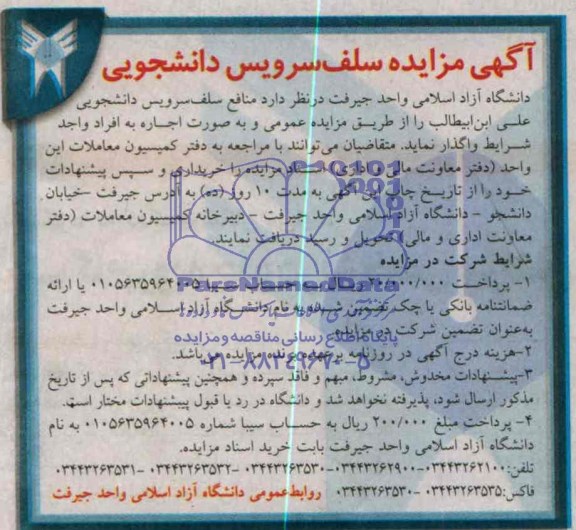 آگهی مزایده سلف‌سرویس دانشجویی
دانشگاه آزاد اسلامی واحد جیرفت درنظر دارد منافع سلف‌سرویس دانشجویی
علی ابن‌ابیطالب را از طریق مزایده عمومی و به صورت اجاره به افراد واجد
شرایط واگذار نماید. متقاضیان می‌توانند با مراجعه به دفتر کمیسیون معاملات این
واحد (دفتر معاونت مالی و اداری) اسناد مزایده را خریداری و سپس پیشنهادات
خود را از تاریخ چاپ این آگهی به مدت ۱۰ روز (ده) به آدرس جیرفت -خیابان
دانشجو - دانشگاه آزاد اسلامی واحد جیرفت - دبیرخانه کمیسیون معاملات (دفتر
معاونت اداری و مالی) تحویل و رسید دریافت نمایند.
شرایط شرکت در مزایده
۱- پرداخت ریال به حساب سیبا ۰۱۰۵۶۳۵۹۶۴۰۰۵ یا ارائه
ضمانتنامه بانکی یا چک تضمین شده به نام دانشگاه آزاد اسلامی واحد جیرفت
به‌عنوان تضمین شرکت در مزایده.
۲-هزینه درج آگهی در روزنامه برعهده برنده مزایده می‌باشد.
۳-پیشنهادات مخدوش، مشروط، مبهم و فاقد سپرده و همچنین پیشنهاداتی که پس از تاریخ
مذکور ارسال شود، پذیرفته نخواهد شد و دانشگاه در رد یا قبول پیشنهادات مختار است.
۴- پرداخت مبلغ ۲۰۰/۰۰۰ ریال به حساب سیبا شماره ۰۱۰۵۶۳۵۹۶۴۰۰۵ به نام
دانشگاه آزاد اسلامی واحد جیرفت بابت خرید اسناد مزایده.
تلفن:۰۳۴۴۳۲۶۲۱۰۰-۰۳۴۴۳۲۶۲۹۰۰-۰۳۴۴۳۲۶۳۵۳۰-۰۳۴۴۳۲۶۳۵۳۲-۰۳۴۴۳۲۶۳۵۳۱
فاکس:۰۳۴۴۳۲۶۳۵۳۵-۰۳۴۴۳۲۶۳۵۳۰ روابط‌عمومی دانشگاه آزاد اسلامی واحد جیرفت
ParsNamadData
پایگاه اطلاع رسانی مناقصه و مزایده
۰۲۱-۸۸۳۴۹۶۷۰-۵